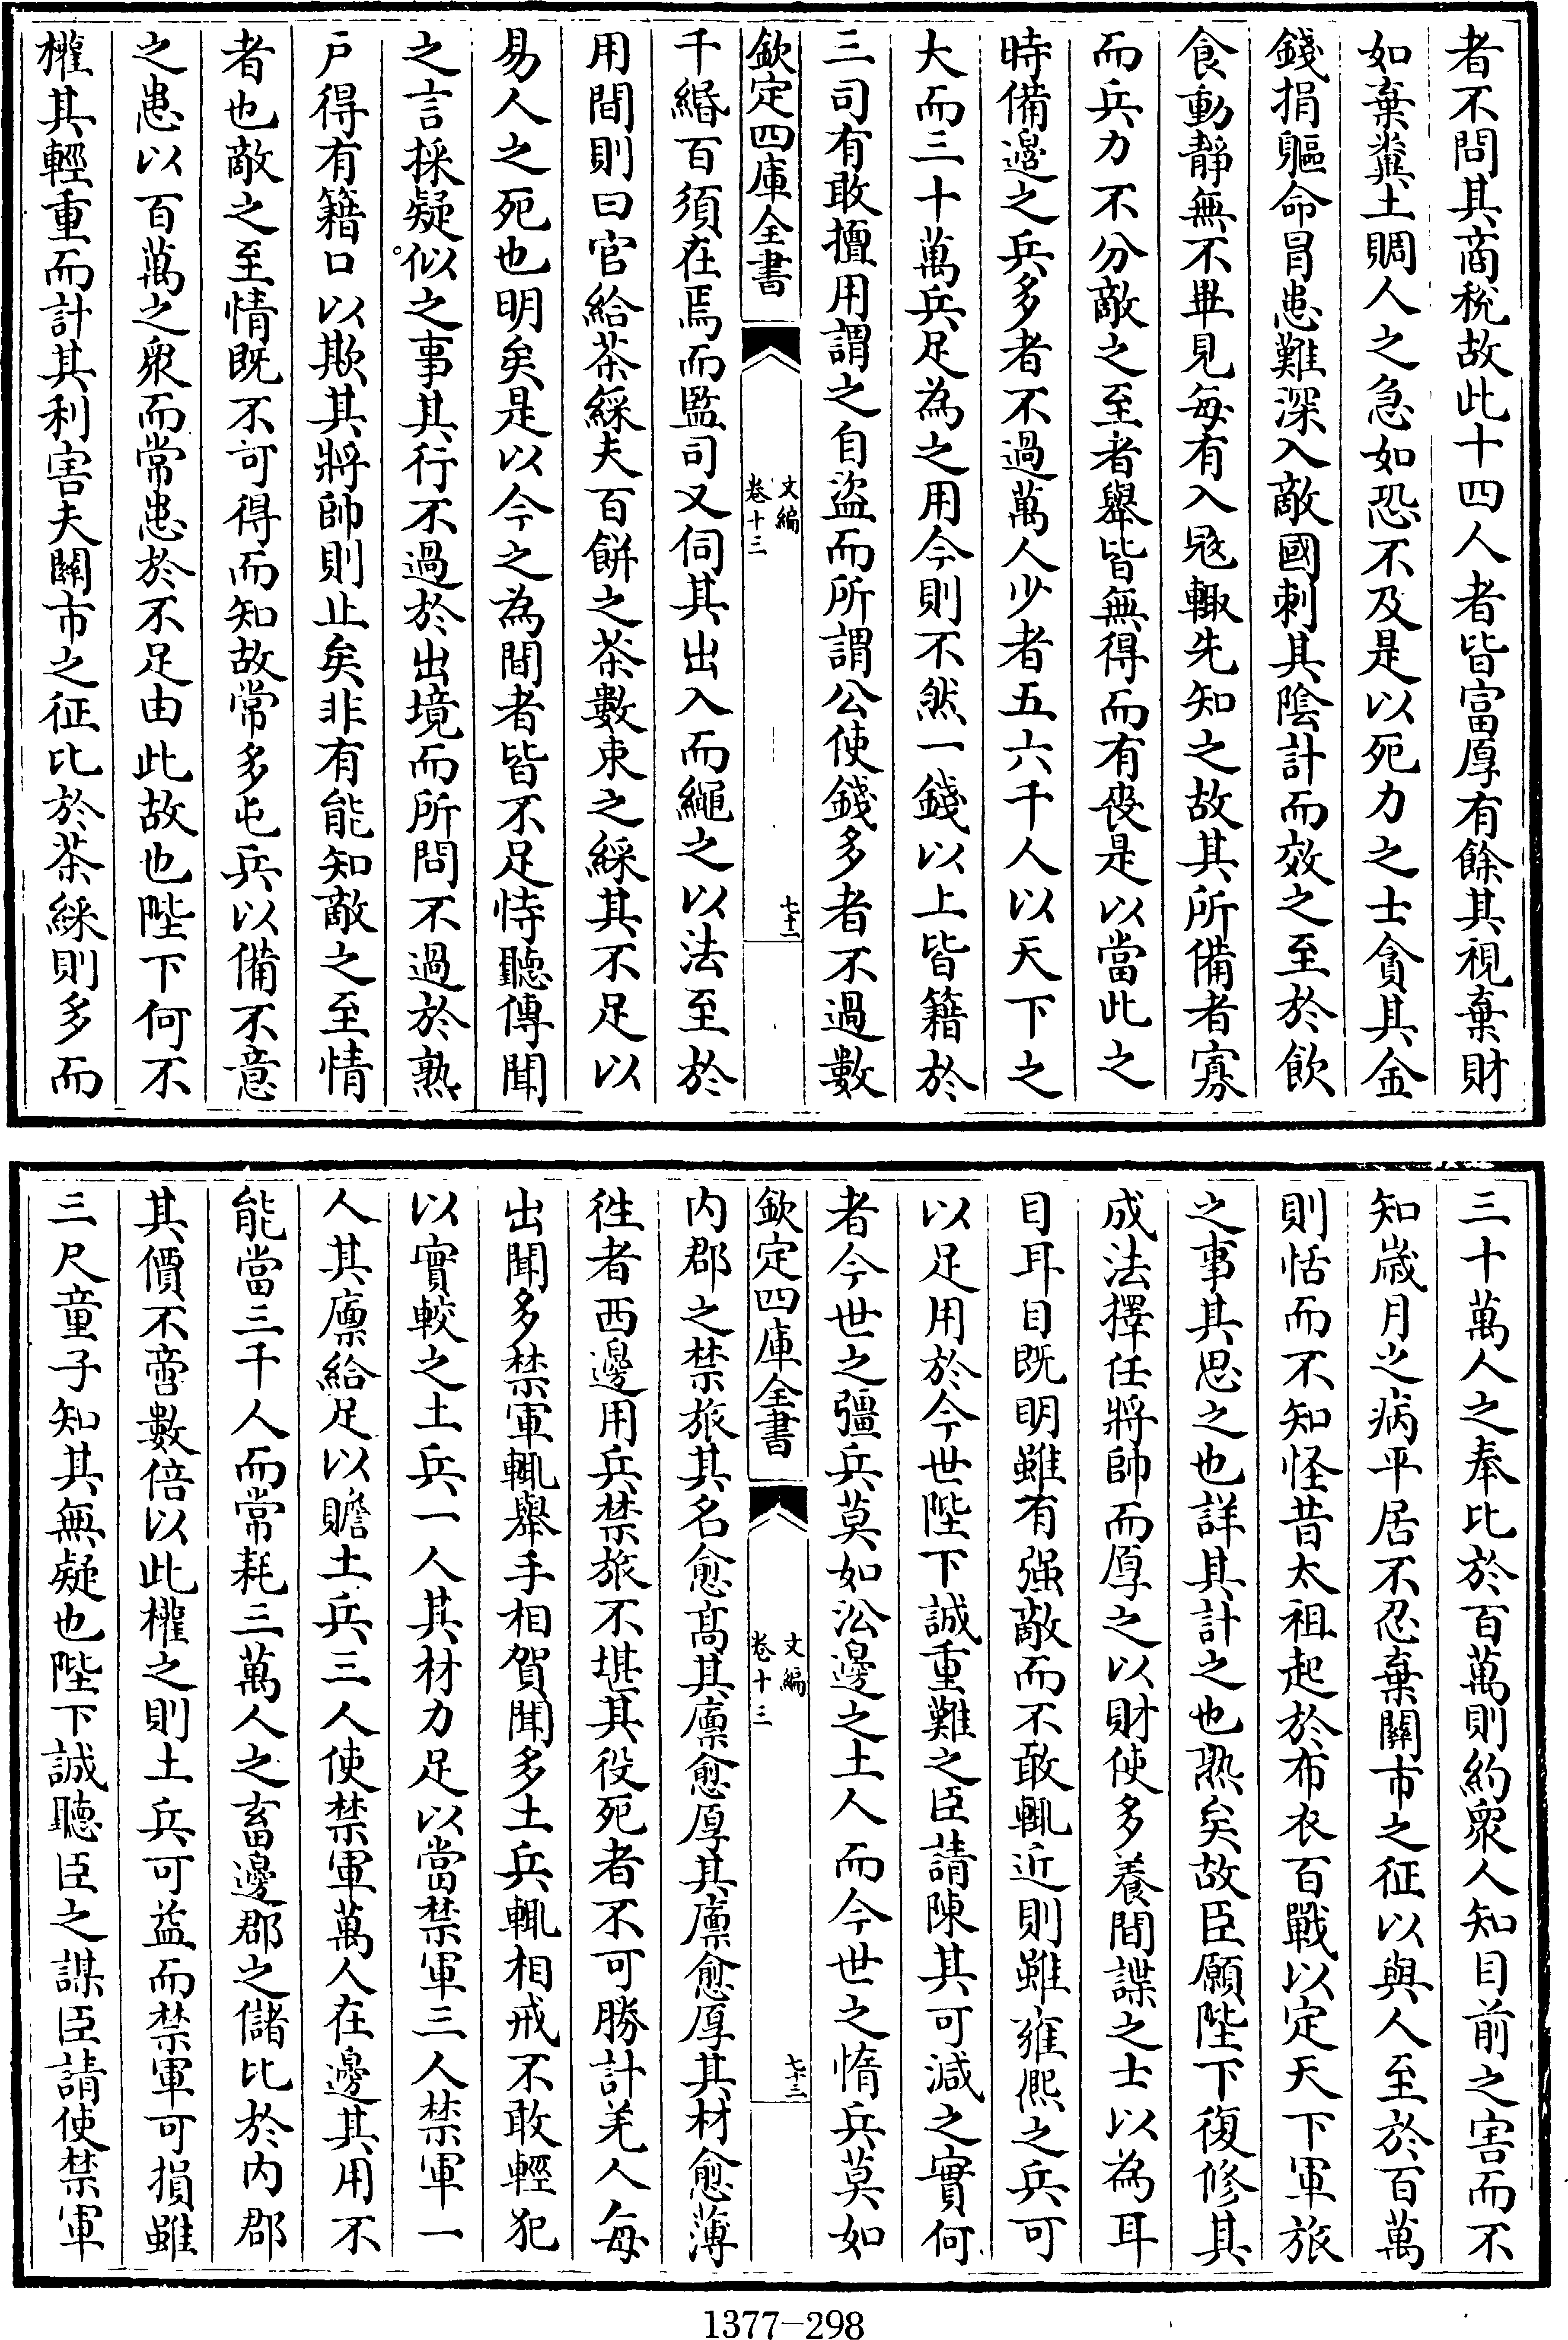 者不問其商稅故此十四人者皆富厚有餘其視棄財
如棄糞土賙人之急如恐不及是以死力之士貪其金
錢捐軀命冒患難深入敵國刺其陰計而效之至於飲
食動靜無不畢見每有入宼輙先知之故其所備者寡
而兵力不分敵之至者舉皆無得而有喪是以當此之
時備邊之兵多者不過萬人少者五六千人以天下之
大而三十萬兵足為之用今則不然一錢以上皆籍於
三司有敢擅用謂之自盜而所謂公使錢多者不過數
欽定四庫全書
文編
卷十三
七十二
千緡百須在焉而監司又伺其出入而繩之以法至於
用間則曰官給茶綵夫百餅之茶數束之綵其不足以
易人之死也明矣是以今之為間者皆不足恃聽傳聞
之言採疑似之事其行不過於出境而所問不過於熟
戶得有籍口以欺其將帥則止矣非有能知敵之至情
者也敵之至情既不可得而知故常多屯兵以備不意
之患以百萬之衆而常患於不足由此故也陛下何不
權其輕重而計其利害夫關市之征比於茶綵則多而
三十萬人之奉比於百萬則約衆人知目前之害而不
知歲月之病平居不忍棄關市之征以與人至於百萬
則恬而不知怪昔太祖起於布衣百戰以定天下軍旅
之事其思之也詳其計之也熟矣故臣願陛下復修其
成法擇任將帥而厚之以財使多養間諜之士以為耳
目耳目既明雖有强敵而不敢輒近則雖雍熈之兵可
以足用於今世陛下誠重難之臣請陳其可減之實何
者今世之彊兵莫如㳂邊之土人而今世之惰兵莫如
欽定四庫全書
文編
卷十三
七十三
内郡之禁旅其名愈髙其廩愈厚其廩愈厚其材愈薄
徃者西邊用兵禁旅不堪其役死者不可勝計羌人每
出聞多禁軍輒舉手相賀聞多土兵輒相戒不敢輕犯
以實較之土兵一人其材力足以當禁軍三人禁軍一
人其廩給足以贍土兵三人使禁軍萬人在邊其用不
能當三千人而常耗三萬人之畜邊郡之儲比於内郡
其價不啻數倍以此權之則土兵可益而禁軍可損雖
三尺童子知其無疑也陛下誠聽臣之謀臣請使禁軍
1377-298